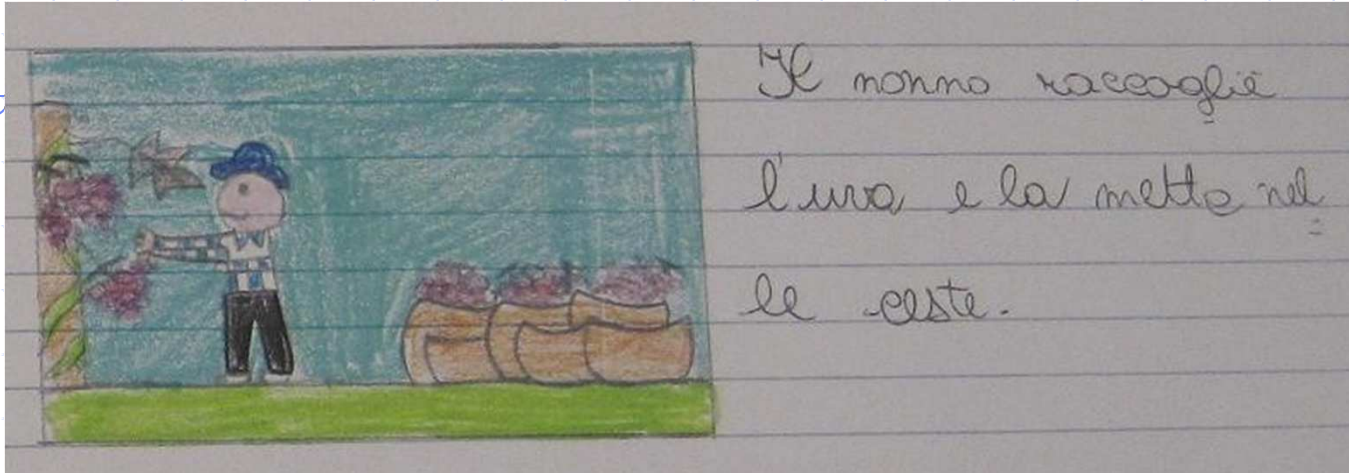 Il nonno raccoglie
l'uva e la mette nel
le ceste.